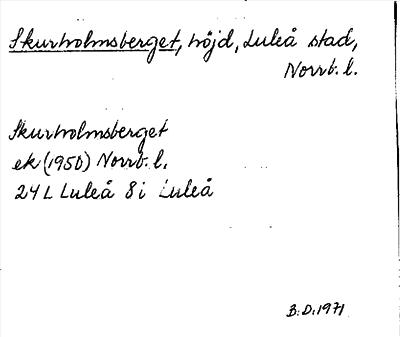 Skurholmsberget, höjd, Luleå stad,
Norrb. l.
Skurholmsberget
ek (1950) Norrb. l.
24 L Luleå 8 i Luleå
B. D. 1971